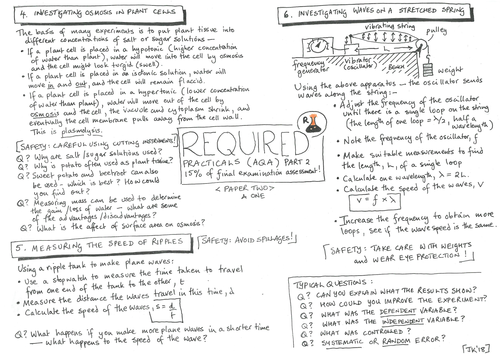 4. INVESTIGATING OSMOSIS IN PLANT CELLS
The basis of many experiments is to put plant tissue into
different concentrations of salt or sugar solutions –
• If a plant cell is placed in a hypotonic (higher concentration
of water than plant), water will move into the cell by osmosis
and the cell might look turgid (swell).
• If a plant cell is placed in an isotonic solution, water will
move in and out, and the cell will remain flaccid.
• If a plant cell is placed in a hypertonic (lower concentration
of water than plant), water will move out of the cell by
osmosis and the cell, the vacuole and cytoplasm shrink, and
eventually the cell membrane pulls away from the cell wall.
This is plasmolysis.
[SAFETY: CAREFUL USING CUTTING IMPLEMENTS!]
Q? Why are salt/sugar solutions used?
Q? Why is potato often used as plant tissue?
Q? Sweet potato and beetroot can also
be used - which is best? How could
you find out?
Q? Measuring mass can be used to determine
the gain/loss of water – what are some
of the advantages/disadvantages?
Q? What is the affect of surface area on osmosis?
5. MEASURING THE SPEED OF RIPPLES
[SAFETY: AVOID SPILLAGES!]
Using a ripple tank to make plane waves:
• Use a stopwatch to measure the time taken to travel
from one end of the tank to the other, t
• Measure the distance the waves travel in this time, d
• Calculate the speed of the waves, s = d/t
Q? What happens if you make more plane waves in a shorter time
– what happens to the speed of the wave?
REQUIRED
PRACTICALS (AQA) PART 2
15% of final examination assessment!
< PAPER TWO >
A ONE
R
6. INVESTIGATING WAVES ON A STRETCHED SPRING
vibrating string
pulley
frequency generator
vibrator (oscillator)
Bench
weight
Using the above apparatus – the oscillator sends
waves along the string:-
• Adjust the frequency of the oscillator
until there is a single loop on the string
(the length of one loop = λ/2, half a
wavelength)
• Note the frequency of the oscillator, f
• Make suitable measurements to find
the length, L, of a single loop
• Calculate one wavelength, λ = 2L.
• Calculate the speed of the waves, V
V = f × λ
• Increase the frequency to obtain more
loops, see if the wave speed is the same.
[SAFETY: TAKE CARE WITH WEIGHTS
and WEAR EYE PROTECTION!]
TYPICAL QUESTIONS:
Q? CAN YOU EXPLAIN WHAT THE RESULTS SHOW?
Q? HOW COULD YOU IMPROVE THE EXPERIMENT?
Q? WHAT WAS THE DEPENDENT VARIABLE?
Q? WHAT WAS THE INDEPENDENT VARIABLE?
Q? WHAT WAS CONTROLLED?
Q? SYSTEMATIC OR RANDOM ERROR?
[JK'18]